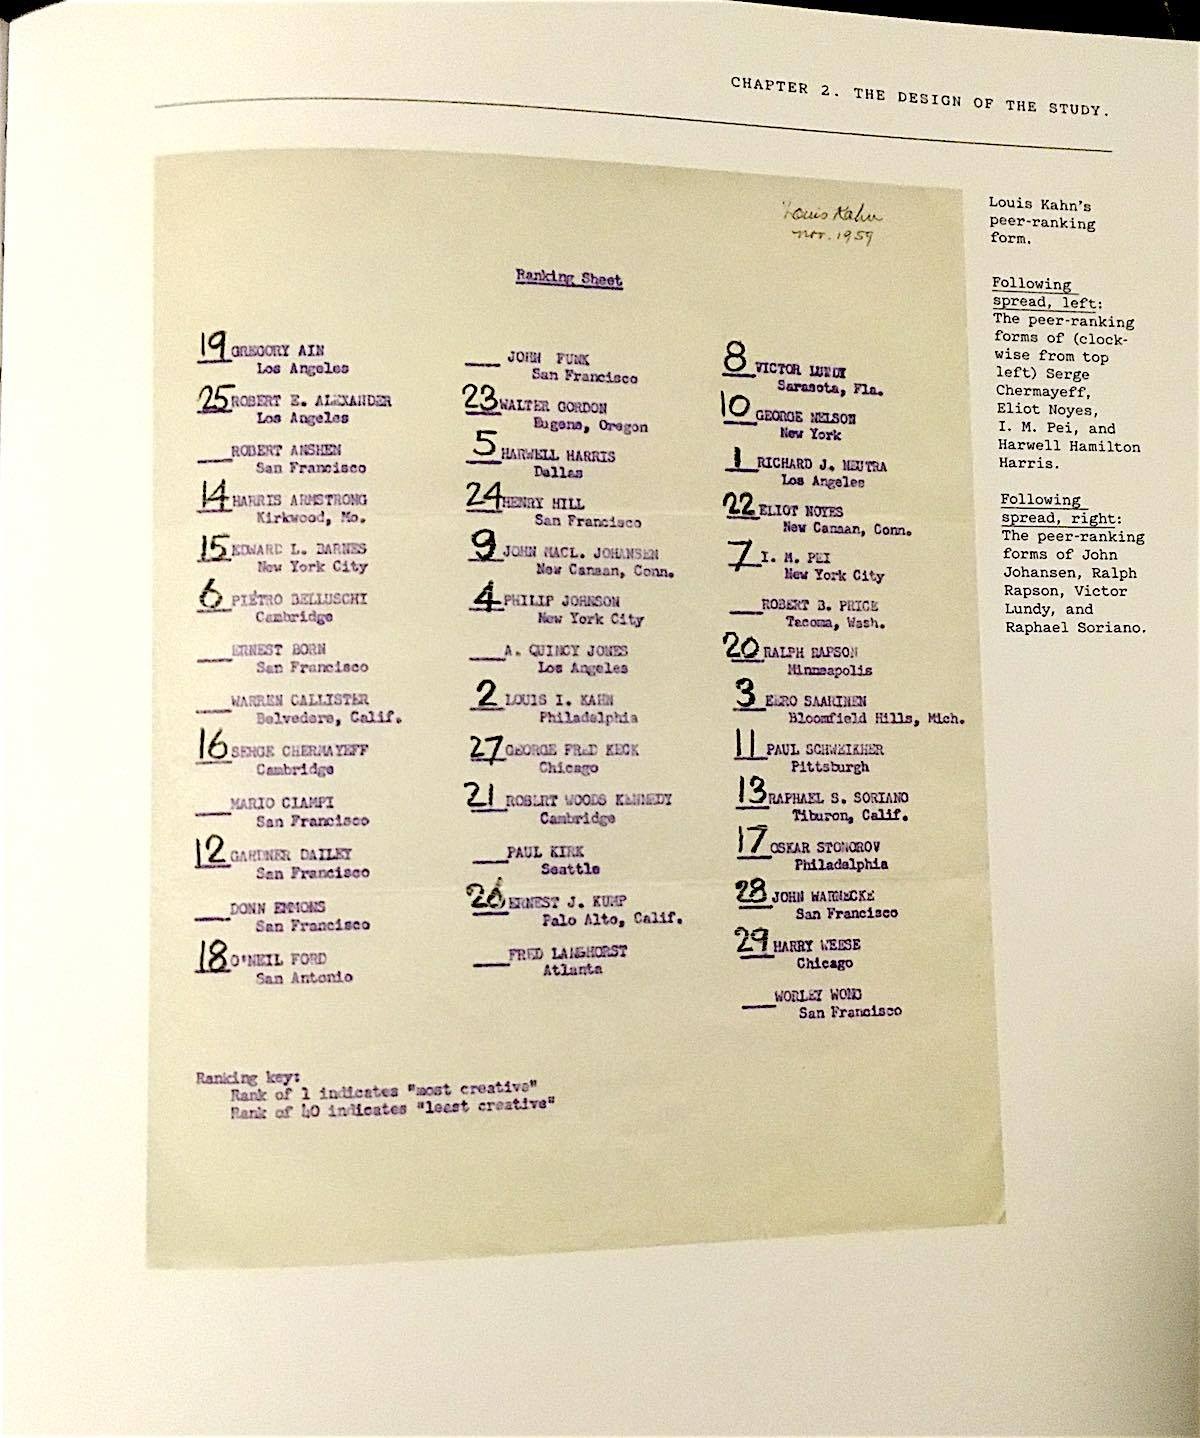 CHAPTER 2. THE DESIGN OF THE STUDY.
Louis Kahn
nov. 1959
Ranking Sheet
19 GREGORY AIN
Los Angeles
25 ROBERT E. ALEXANDER
Los Angeles
___ ROBERT ANSHEN
San Francisco
14 HARRIS ARMSTRONG
Kirkwood, Mo.
15 EDWARD L. BARNES
New York City
6 PIETRO BELLUSCHI
Cambridge
___ ERNEST BORN
San Francisco
___ WARREN CALLISTER
Belvedere, Calif.
16 SERGE CHERMAYEFF
Cambridge
___ MARIO CIAMPI
San Francisco
12 GARDNER DAILEY
San Francisco
___ DONN EMMONS
San Francisco
18 O'NEIL FORD
San Antonio
___ JOHN FUNK
San Francisco
23 WALTER GORDON
Eugene, Oregon
5 HARWELL HARRIS
Dallas
24 HENRY HILL
San Francisco
9 JOHN MACL. JOHANSEN
New Canaan, Conn.
4 PHILIP JOHNSON
New York City
___ A. QUINCY JONES
Los Angeles
2 LOUIS I. KAHN
Philadelphia
27 GEORGE FRED KECK
Chicago
21 ROBERT WOODS KENNEDY
Cambridge
___ PAUL KIRK
Seattle
26 ERNEST J. KUMP
Palo Alto, Calif.
___ FRED LANGHORST
Atlanta
8 VICTOR LUNDY
Sarasota, Fla.
10 GEORGE NELSON
New York
1 RICHARD J. NEUTRA
Los Angeles
22 ELIOT NOYES
New Canaan, Conn.
7 I. M. PEI
New York City
___ ROBERT B. PRICE
Tacoma, Wash.
20 RALPH RAPSON
Minneapolis
3 EERO SAARINEN
Bloomfield Hills, Mich.
11 PAUL SCHWEIKHER
Pittsburgh
13 RAPHAEL S. SORIANO
Tiburon, Calif.
17 OSKAR STONOROV
Philadelphia
28 JOHN WARNECKE
San Francisco
29 HARRY WEESE
Chicago
___ WORLEY WONG
San Francisco
Ranking key:
Rank of 1 indicates "most creative"
Rank of 40 indicates "least creative"
Louis Kahn's
peer-ranking
form.
Following
spread, left:
The peer-ranking
forms of (clock-
wise from top
left) Serge
Chermayeff,
Eliot Noyes,
I. M. Pei, and
Harwell Hamilton
Harris.
Following
spread, right:
The peer-ranking
forms of John
Johansen, Ralph
Rapson, Victor
Lundy, and
Raphael Soriano.